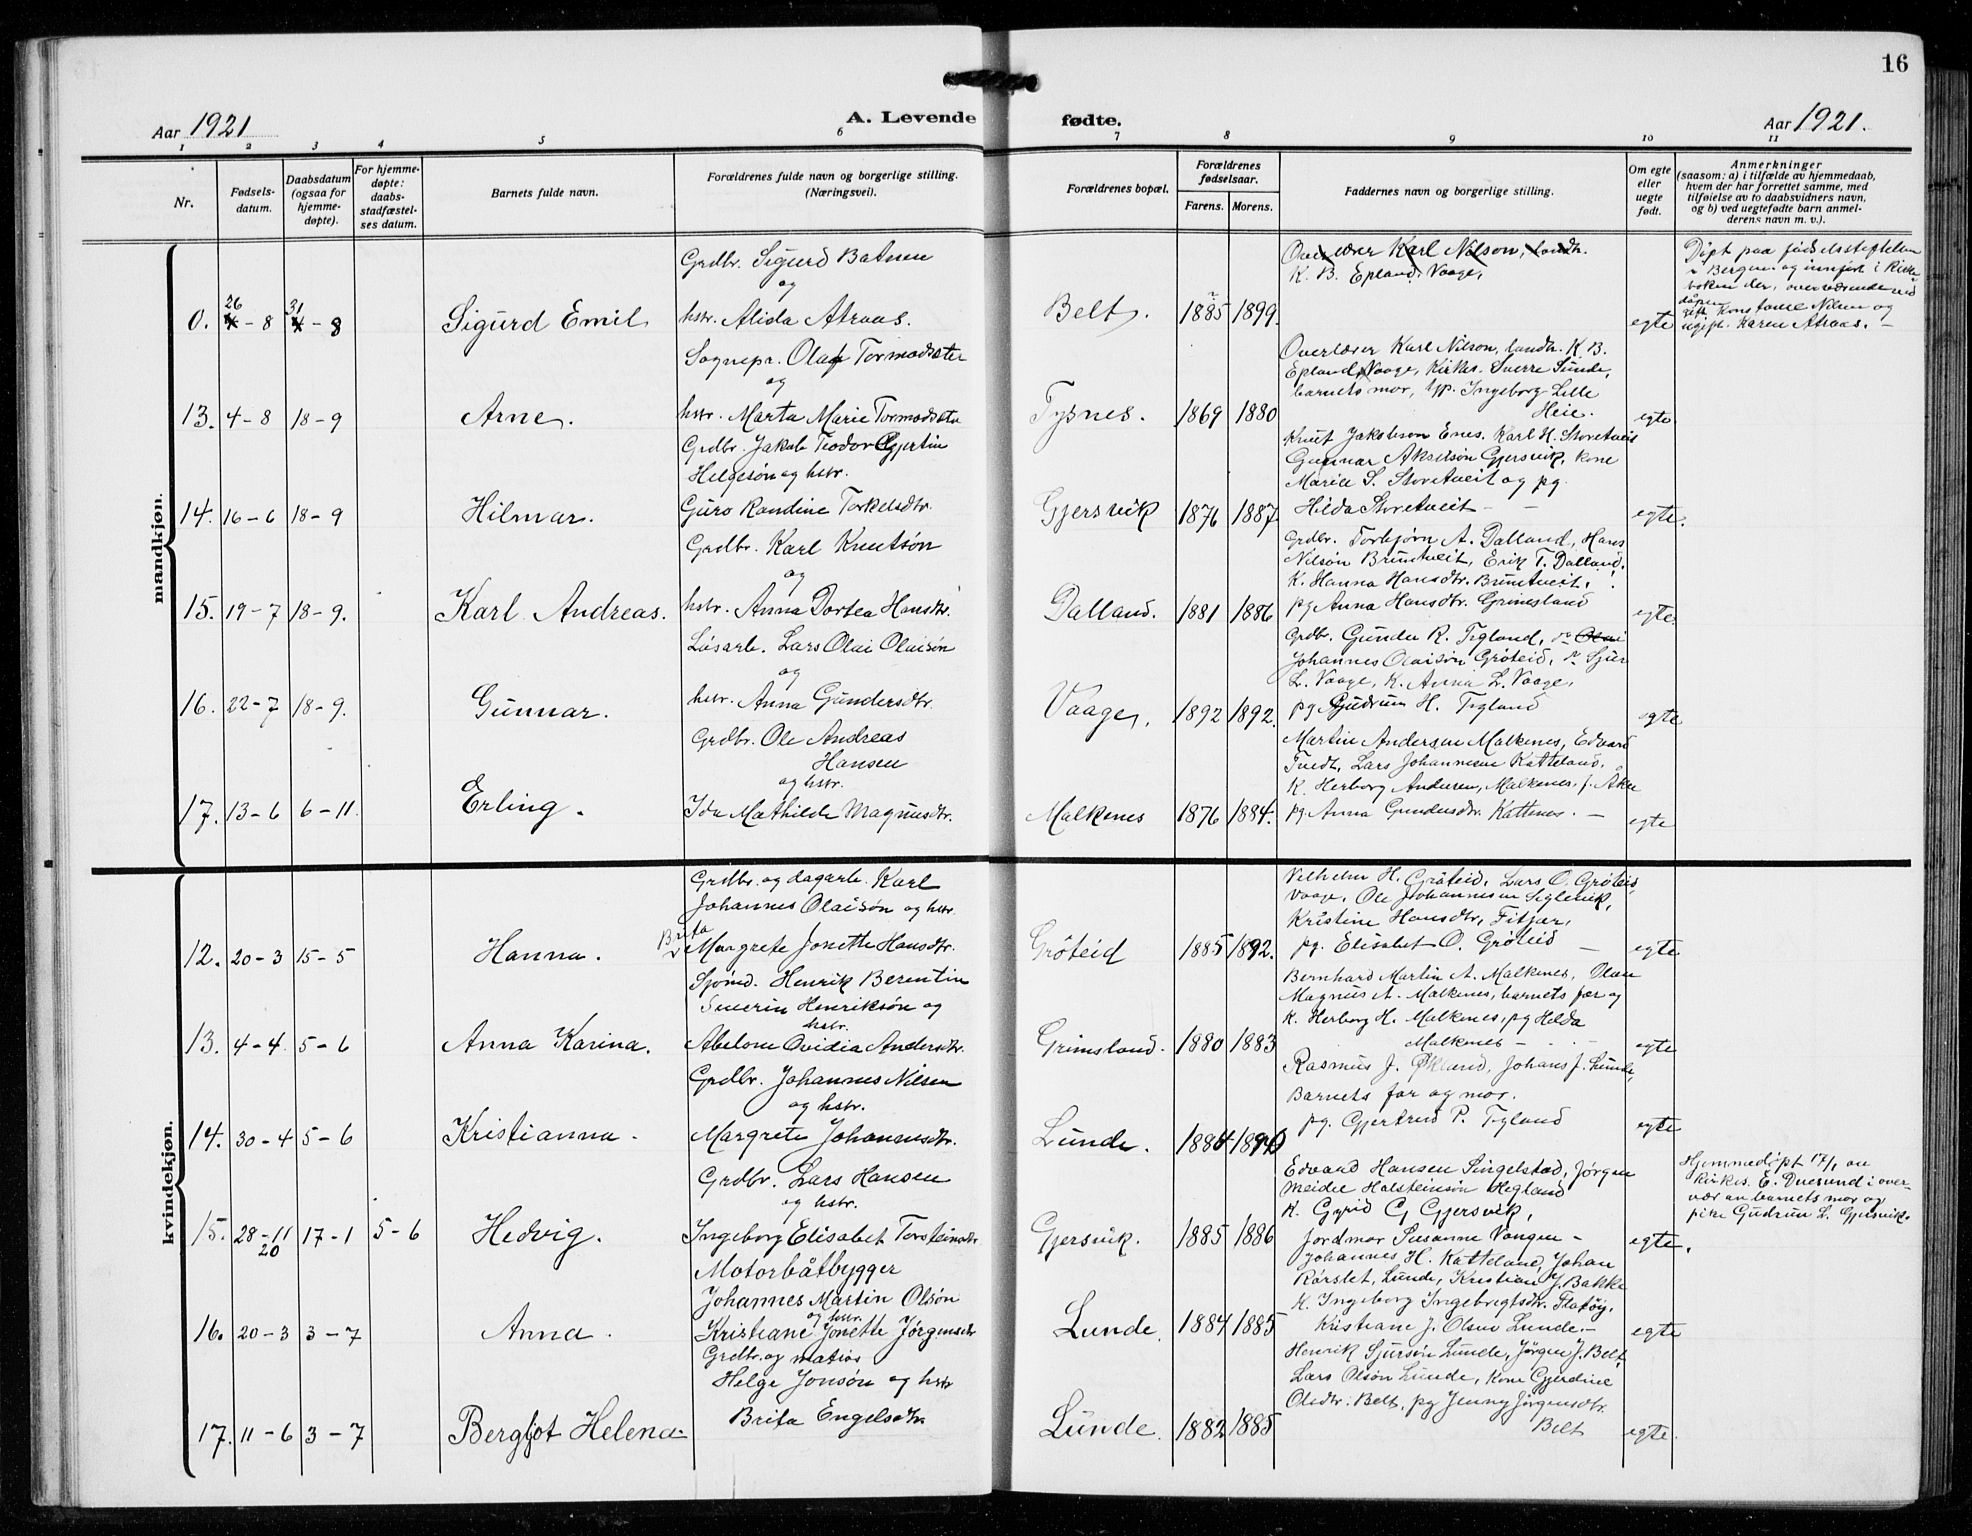 16
Aar 1921
A. Levende
fødte.
Aar 1921.
1 2 3 4 5 6 7 8 9 10 11
Nr.
Fødsels-
datum.
Daabsdatum
(ogsaa for
hjemme-
døpte).
For hjemme-
døpte:
daabs-
stadfæstel-
ses datum.
Barnets fulde navn.
Forældrenes fulde navn og borgerlige stilling.
(Næringsvei).
Forældrenes bopæl.
Forældrenes
fødselsaar.
Farens. Morens.
Faddernes navn og borgerlige stilling.
Om egte
eller
uegte
født.
Anmerkninger
(saasom: a) i tilfælde av hjemmedaab,
hvem der har forrettet samme, med
tilføielse av to daabsvidners navn,
og b) ved uegtefødte barn anmel-
derens navn m. v.).
mandkjøn.
0. 26 - 8 31 - 8 Sigurd Emil
Grdbr. Sigurd Batnen
og
hstr. Alida Atraas.
Belt. 1885 1899.
Overlærer Karl Nilson, landh.
K. B. Epland, Vaage,
egte
Døpt paa fødselsstiftelsen
i Bergen og innført i Kirke
boken der, overværende ved
dåpen Konstanse Nilsen og
ugift. Karen Atraas. -
13. 4-8 18-9 Arne.
Sognepr. Olaf Tormodsæter
og
hstr. Marta Marie Tormodsæter
Tysnes. 1869 1880
Overlærer Karl Nilson, landh. K. B.
Epland, Vaage, Kirkes. Sverre Sunde,
barnets mor, Ingeborg Lille
Heie.
egte
14. 16-6 18-9 Hilmar.
Grdbr. Jakob Teodor Gjertin
Helgesøn og hstr.
Guro Randine Torkelsdtr.
Gjersvik 1876 1887
Knut Jakobson Enes. Karl H. Storetveit
Gunnar Akselsøn Gjersvik, kone
Marie S. Storetveit og pg.
Hilda Storetveit - -
egte.
15. 19-7 18-9. Karl Andreas.
Grdbr. Karl Knutsøn
og
hstr. Anna Dortea Hansdtr.
Dalland. 1881 1886
Grdbr. Torbjørn A. Dalland, Hans
Nilsøn Bruntveit, Erik T. Dalland.
K. Hanna Hansdtr. Bruntveit,
pg Anna Hansdtr. Grimsland
egte.
16. 22-7 18-9. Gunnar.
Løsarb. Lars Olai Olaisøn
og
hstr. Anna Gundersdtr.
Vaage, 1892 1892.
Grdbr. Gunder R. Tegland, Olai
Johannes Olaisøn Grøteid, Sjur
L. Vaage, K. Anna L. Vaage,
pg Gudrun H. Tegland
egte
17. 13-6 6-11. Erling.
Grdbr. Ole Andreas
Hansen
og hstr.
Ida Mathilde Magnusdtr.
Malkenes 1876 1884.
Martin Andersen Malkenes, Edvard
Tvedt, Lars Johannesen Katteland.
K. Herborg Andersen, Malkenes, f. Åkre
pg Anna Gundersdtr. Kattenes. -
egte
kvindekjøn.
12. 20-3 15-5 Hanna.
Grdbr. og dagarb. Karl
Johannes Olaisøn og hstr.
Brita
Margrete Jonette Hansdtr.
Grøteid 1885 1892.
Vilhelm H. Grøteid, Lars O. Grøteid,
Vaage, Ole Johannesen Teglevik,
Kristine Hansdtr, Fitjar,
pg. Elisabet O. Grøteid -
egte
13. 4-4. 5-6 Anna Karina.
Sjømd. Henrik Berentin
Severin Henriksøn og
hstr.
Abelone Ovidia Andersdtr.
Grimsland. 1880 1883
Bernhard Martin A. Malkenes, Olav
Magnus A. Malkenes, barnets far og
K. Herborg H. Malkenes, pg Helda
Malkenes -
egte
14. 30-4 5-6 Kristianna.
Grdbr. Johannes Nilsen
og hstr.
Margrete Johannesdtr.
Lunde. 1884 1890
Rasmus J. Økland, Johans J. Lunde,
Barnets far og mor.
pg. Gjertrud P. Tegland
egte
15. 28-11 20 17-1 5-6 Hedvig.
Grdbr. Lars Hansen
og hstr.
Ingeborg Elisabet Torsteinsdtr.
Gjersvik. 1885 1886
Edvard Hansen Singelstad, Jørgen
Meidel Halsteinsøn Hegland
K. Gyrid G Gjersvik,
Jordmor Susanne Vangen -
egte.
Hjemmedøpt 17/1 av
Kirkes. E. Duesund i over-
vær av barnets mor og
pike Gudrun L. Gjersvik.
16. 20-3 3-7 Anna.
Motorbåtbygger
Johannes Martin Olsøn
og hstr.
Kristiane Jonette Jørgensdtr
Lunde. 1884 1885
Johannes H. Katteland, Johan
Rørslet, Lunde, Kristian J. Bakke
K. Ingeborg Ingebrigtsdtr. Flatøy,
Kristiane J. Olsen Lunde. -
egte
17. 11-6 3-7 Bergljot Helena
Grdbr. og matros
Helge Jonsøn og hstr
Brita Engelsdtr.
Lunde. 1882 1885
Henrik Sjursøn Lunde, Jørgen J. Belt,
Lars Olsøn Lunde, kone Gjerdine
Olsdtr. Belt, pg Jenny Jørgensdtr.
Belt
egte.